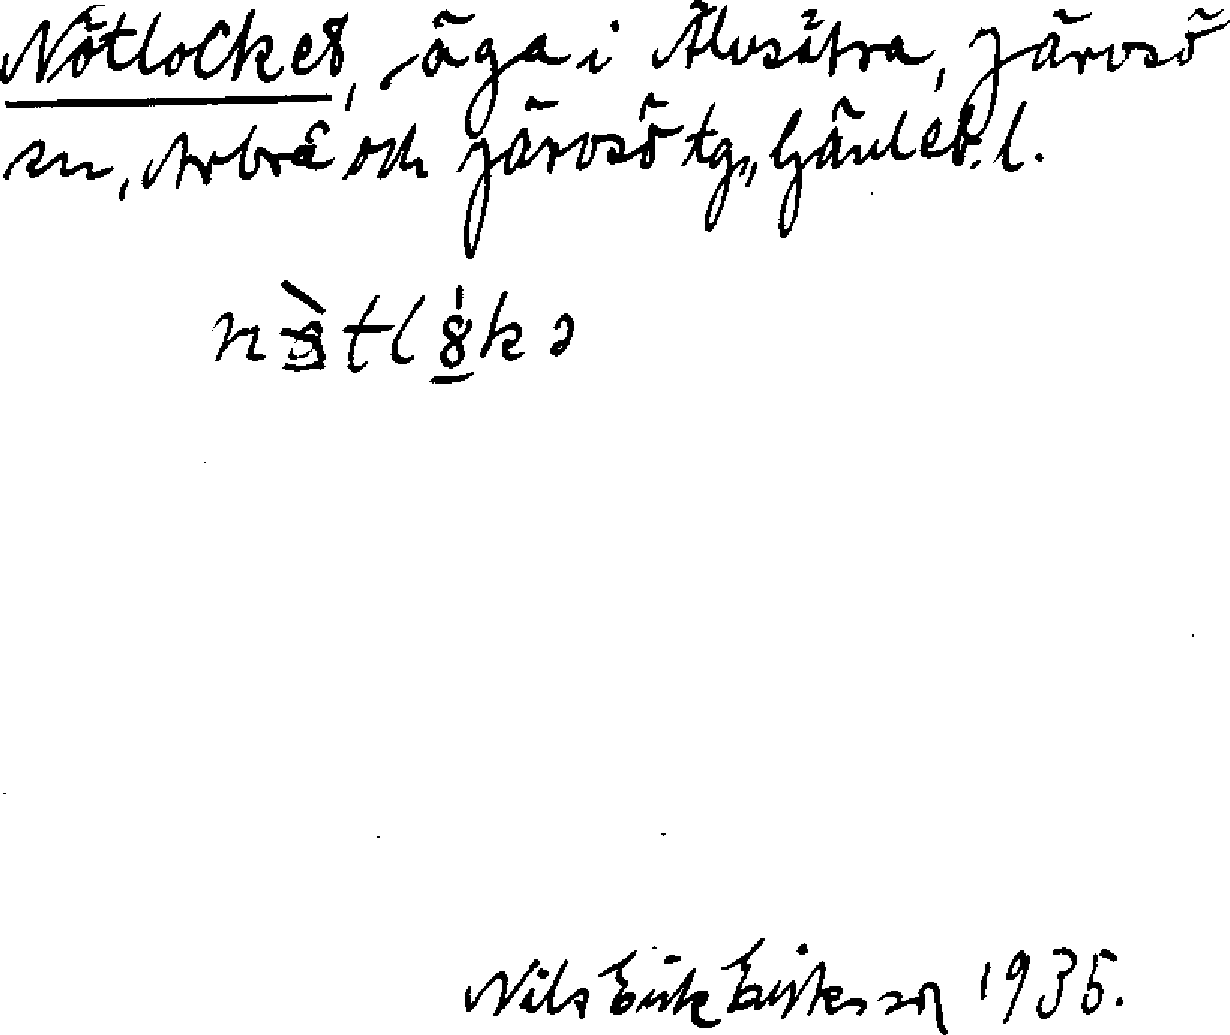 Nötlocket, äga i Älvsätra, Järvsö
sn, Arbrå och Järvsö tg., Gävleb. l.
Nils Erik Eriksson 1935.